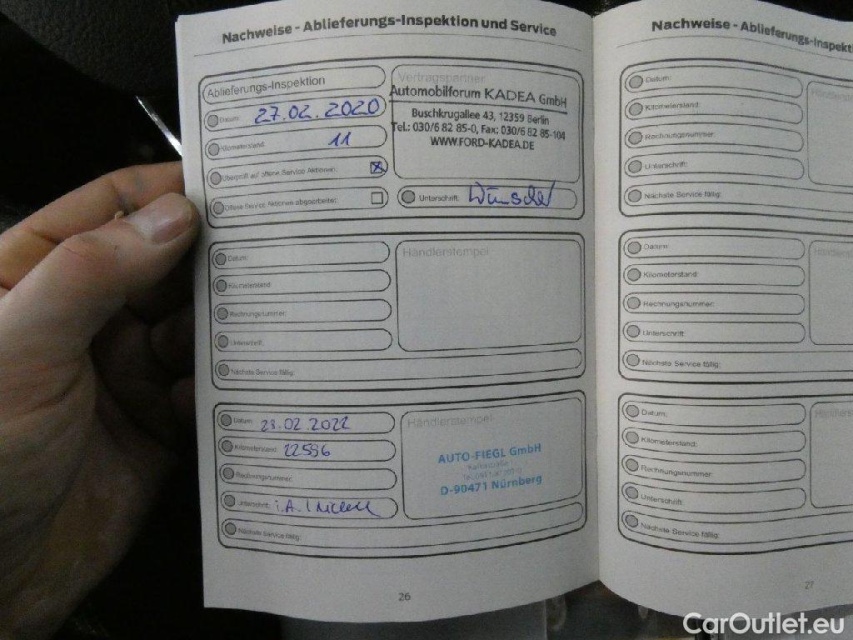 Nachweise - Ablieferungs-Inspektion und Service
Ablieferungs-Inspektion
Datum: 27.02.2020
Kilometerstand: 11
Überprüft auf offene Service Aktionen:
Offene Service Aktionen abgearbeitet:
Vertragspartner
Automobilforum KADEA GmbH
Buschkrugallee 43, 12359 Berlin
Tel.: 030/6 82 85-0, Fax: 030/6 82 85-104
WWW.FORD-KADEA.DE
Unterschrift:
Datum:
Kilometerstand:
Rechnungsnummer:
Unterschrift:
Nächste Service fällig:
Händlerstempel
Datum: 23.02.2022
Kilometerstand: 22596
Rechnungsnummer:
Unterschrift: i.A.
Nächste Service fällig:
Händlerstempel
AUTO-FIEGL GmbH
D-90471 Nürnberg
26
Nachweise - Ablieferungs-Inspekti
Datum:
Kilometerstand:
Rechnungsnummer:
Unterschrift:
Nächste Service fällig:
Datum:
Kilometerstand:
Rechnungsnummer:
Unterschrift:
Nächste Service fällig:
Datum:
Kilometerstand:
Rechnungsnummer:
Unterschrift:
Nächste Service fällig:
27
CarOutlet.eu